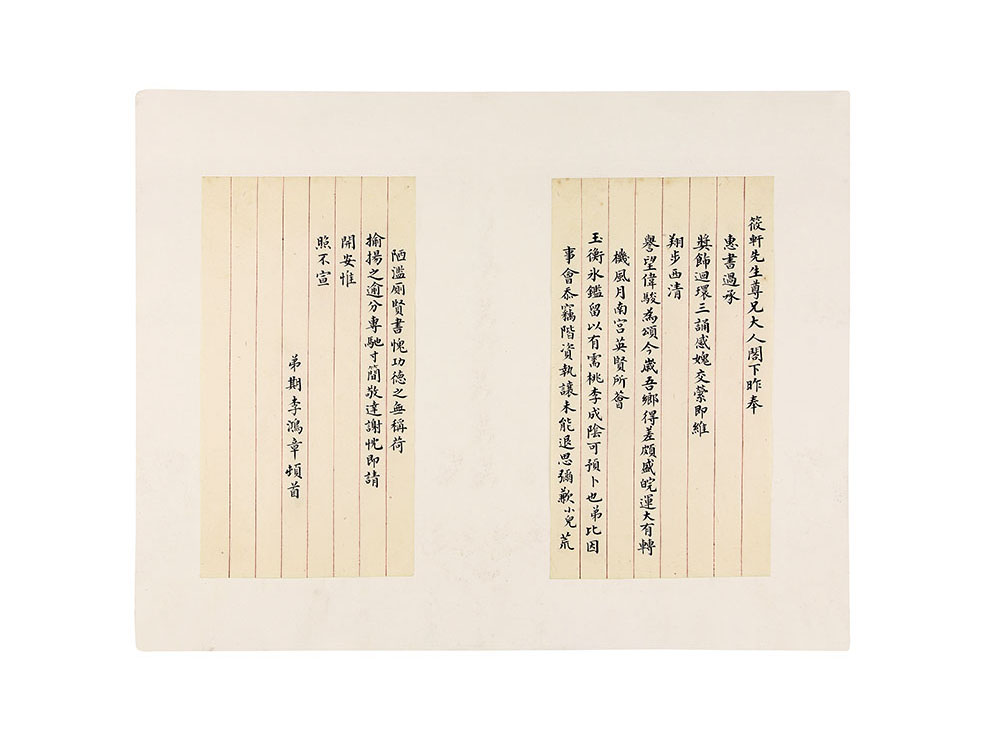 筱軒先生尊兄大人閣下昨奉
惠書過承
獎飾迴環三誦感媿交縈即維
翔步西清
譽望偉駿為頌今歲吾鄉得差頗盛皖運大有轉
機風月南宮英賢所薈
玉衡氷鑑留以有需桃李成陰可預卜也弟比因
事會忝竊階資執讓未能退思彌歉小兒荒
陋濫厠賢書愧功德之無稱荷
揄揚之逾分專馳寸簡敬達謝忱即請
開安惟
照不宣
弟期李鴻章頓首